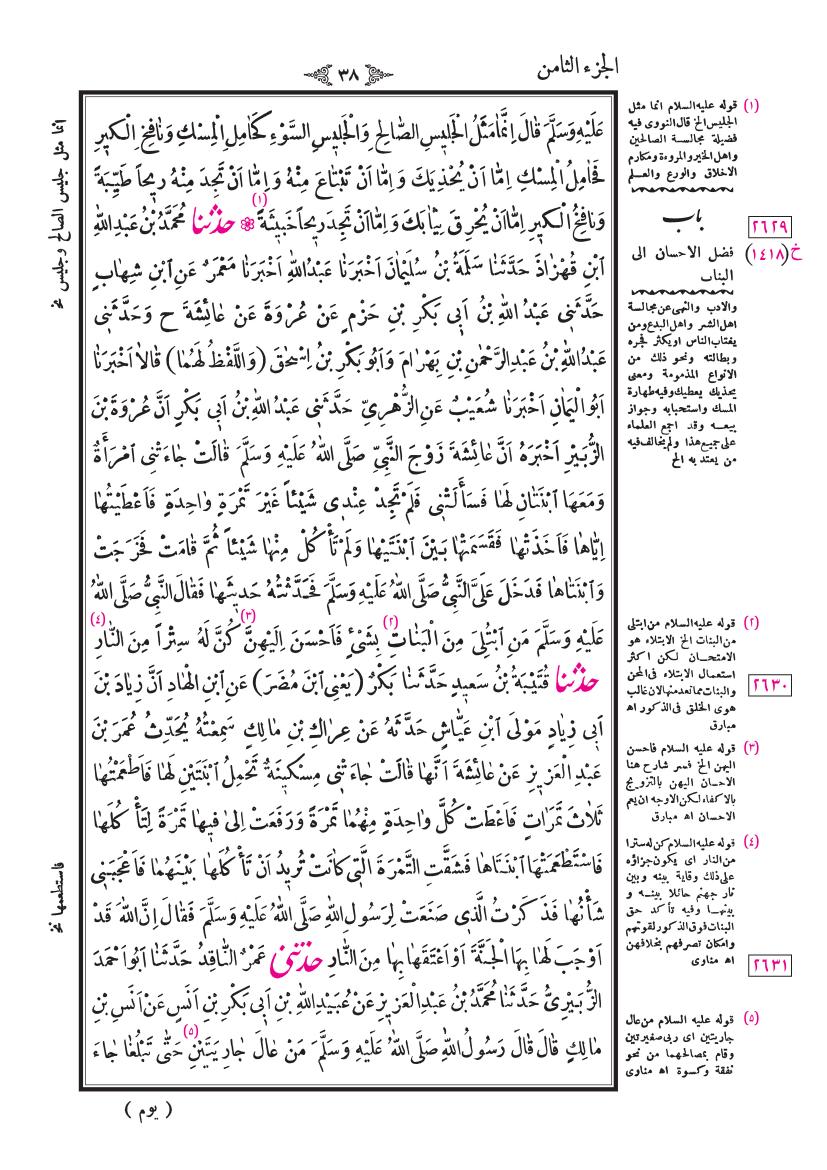 الجزء الثامن
٣٨
عَلَيْهِ وَسَلَّمَ قَالَ اِنَّمَا مَثَلُ الْجَلِيسِ الصَّالِحِ وَالْجَلِيسِ السَّوْءِ كَحَامِلِ الْمِسْكِ وَنَافِخِ الْكِيرِ
فَحَامِلُ الْمِسْكِ اِمَّا اَنْ يُحْذِيَكَ وَاِمَّا اَنْ تَبْتَاعَ مِنْهُ وَاِمَّا اَنْ تَجِدَ مِنْهُ رِيحاً طَيِّبَةً
وَنَافِخُ الْكِيرِ اِمَّا اَنْ يُحْرِقَ ثِيَابَكَ وَاِمَّا اَنْ تَجِدَ رِيحاً خَبِيثَةً (١) ❁ حَدَّثَنَا مُحَمَّدُ بْنُ عَبْدِ اللّٰهِ
ابْنِ قُهْزَاذَ حَدَّثَنَا سَلَمَةُ بْنُ سُلَيْمَانَ اَخْبَرَنَا عَبْدُ اللّٰهِ اَخْبَرَنَا مَعْمَرٌ عَنِ ابْنِ شِهَابٍ
حَدَّثَنِى عَبْدُ اللّٰهِ بْنُ اَبِى بَكْرِ بْنِ حَزْمٍ عَنْ عُرْوَةَ عَنْ عَائِشَةَ ح وَحَدَّثَنِى
عَبْدُ اللّٰهِ بْنُ عَبْدِ الرَّحْمٰنِ بْنِ بَهْرَامَ وَاَبُو بَكْرِ بْنُ اِسْحٰقَ (وَاللَّفْظُ لَهُمَا) قَالَا اَخْبَرَنَا
اَبُو الْيَمَانِ اَخْبَرَنَا شُعَيْبٌ عَنِ الزُّهْرِىِّ حَدَّثَنِى عَبْدُ اللّٰهِ بْنُ اَبِى بَكْرٍ اَنَّ عُرْوَةَ بْنَ
الزُّبَيْرِ اَخْبَرَهُ اَنَّ عَائِشَةَ زَوْجَ النَّبِىِّ صَلَّى اللّٰهُ عَلَيْهِ وَسَلَّمَ قَالَتْ جَاءَتْنِى امْرَأَةٌ
وَمَعَهَا ابْنَتَانِ لَهَا فَسَأَلَتْنِى فَلَمْ تَجِدْ عِنْدِى شَيْئاً غَيْرَ تَمْرَةٍ وَاحِدَةٍ فَاَعْطَيْتُهَا
اِيَّاهَا فَاَخَذَتْهَا فَقَسَمَتْهَا بَيْنَ ابْنَتَيْهَا وَلَمْ تَأْكُلْ مِنْهَا شَيْئاً ثُمَّ قَامَتْ فَخَرَجَتْ
وَابْنَتَاهَا فَدَخَلَ عَلَىَّ النَّبِىُّ صَلَّى اللّٰهُ عَلَيْهِ وَسَلَّمَ فَحَدَّثْتُهُ حَدِيثَهَا فَقَالَ النَّبِىُّ صَلَّى اللّٰهُ
عَلَيْهِ وَسَلَّمَ مَنِ ابْتُلِىَ مِنَ الْبَنَاتِ (٢) بِشَىْءٍ فَاَحْسَنَ اِلَيْهِنَّ (٣) كُنَّ لَهُ سِتْراً مِنَ النَّارِ (٤)
حَدَّثَنَا قُتَيْبَةُ بْنُ سَعِيدٍ حَدَّثَنَا بَكْرٌ (يَعْنِى ابْنَ مُضَرَ) عَنِ ابْنِ الْهَادِ اَنَّ زِيَادَ بْنَ
اَبِى زِيَادٍ مَوْلَى ابْنِ عَيَّاشٍ حَدَّثَهُ عَنْ عِرَاكِ بْنِ مَالِكٍ سَمِعْتُهُ يُحَدِّثُ عُمَرَ بْنَ
عَبْدِ الْعَزِيزِ عَنْ عَائِشَةَ اَنَّهَا قَالَتْ جَاءَتْنِى مِسْكِينَةٌ تَحْمِلُ ابْنَتَيْنِ لَهَا فَاَطْعَمْتُهَا
ثَلَاثَ تَمَرَاتٍ فَاَعْطَتْ كُلَّ وَاحِدَةٍ مِنْهُمَا تَمْرَةً وَرَفَعَتْ اِلٰى فِيهَا تَمْرَةً لِتَأْكُلَهَا
فَاسْتَطْعَمَتْهَا ابْنَتَاهَا فَشَقَّتِ التَّمْرَةَ الَّتِى كَانَتْ تُرِيدُ اَنْ تَأْكُلَهَا بَيْنَهُمَا فَاَعْجَبَنِى
شَأْنُهَا فَذَكَرْتُ الَّذِى صَنَعَتْ لِرَسُولِ اللّٰهِ صَلَّى اللّٰهُ عَلَيْهِ وَسَلَّمَ فَقَالَ اِنَّ اللّٰهَ قَدْ
اَوْجَبَ لَهَا بِهَا الْجَنَّةَ اَوْ اَعْتَقَهَا بِهَا مِنَ النَّارِ حَدَّثَنِى عَمْرٌو النَّاقِدُ حَدَّثَنَا اَبُو اَحْمَدَ
الزُّبَيْرِىُّ حَدَّثَنَا مُحَمَّدُ بْنُ عَبْدِ الْعَزِيزِ عَنْ عُبَيْدِ اللّٰهِ بْنِ اَبِى بَكْرِ بْنِ اَنَسٍ عَنْ اَنَسِ بْنِ
مَالِكٍ قَالَ قَالَ رَسُولُ اللّٰهِ صَلَّى اللّٰهُ عَلَيْهِ وَسَلَّمَ مَنْ عَالَ جَارِيَتَيْنِ (٥) حَتّٰى تَبْلُغَا جَاءَ
( يوم )
(١) قوله عليه السلام انما مثل
الجليس الخ قال النووى فيه
فضيلة مجالسة الصالحين
واهل الخير والمروءة ومكارم
الاخلاق والورع والعلم
باب
٢٦٢٩
فضل الاحسان الى
خ (١٤١٨)
البنات
والادب والنهى عن مجالسة
اهل الشر واهل البدع ومن
يغتاب الناس او يكثر فجره
وبطالته ونحو ذلك من
الانواع المذمومة ومعنى
يحذيك يعطيك وفيه طهارة
المسك واستحبابه وجواز
بيعه وقد اجمع العلماء
على جميع هذا ولم يخالف فيه
من يعتد به الخ
(٢) قوله عليه السلام من ابتلى
من البنات الخ الابتلاء هو
الامتحان لكن اكثر
استعمال الابتلاء فى المحن
والبنات مما تعد منها لان غالب
هوى الخلق فى الذكور اه
مبارق
٢٦٣٠
(٣) قوله عليه السلام فاحسن
اليهن الخ فسر شارح هنا
الاحسان اليهن بالتزويج
بالاكفاء لكن الاوجه ان يعم
الاحسان اه مبارق
(٤) قوله عليه السلام كن له سترا
من النار اى يكون جزاؤه
على ذلك وقاية بينه وبين
نار جهنم حائلا بينه و
بينها وفيه تأكد حق
البنات فوق الذكور لقوتهم
وامكان تصرفهم بخلافهن
اه مناوى
٢٦٣١
(٥) قوله عليه السلام من عال
جاريتين اى ربى صغيرتين
وقام بمصالحهما من نحو
نفقة وكسوة اه مناوى
انما مثل جليس الصالح وجليس نخ
فاستطعمها نخ